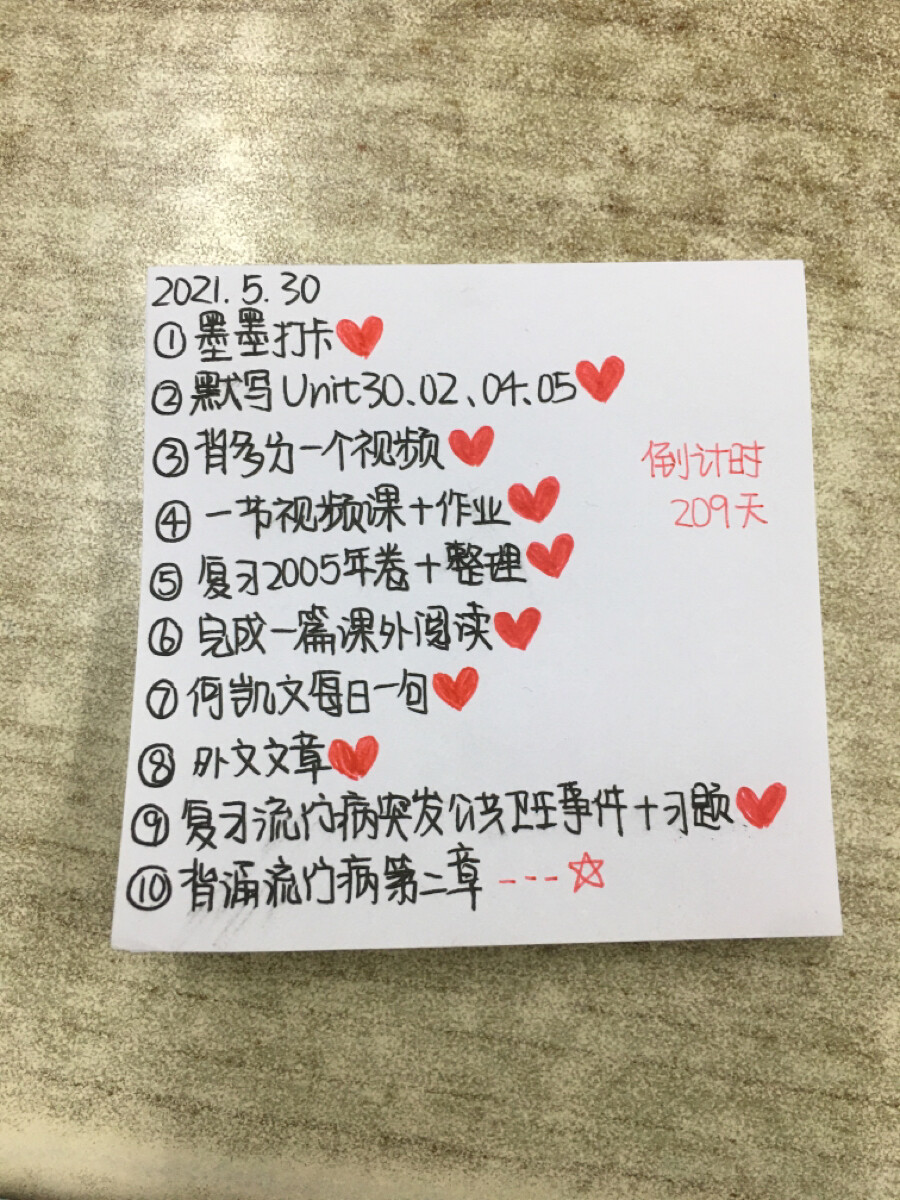 2021.5.30
①墨墨打卡
②默写Unit30、02、04、05
③背多分一个视频
④一节视频课+作业
⑤复习2005年卷+整理
⑥完成一篇课外阅读
⑦何凯文每日一句
⑧外文文章
⑨复习流行病突发公共卫生事件+习题
⑩背诵流行病第二章---☆
倒计时
209天